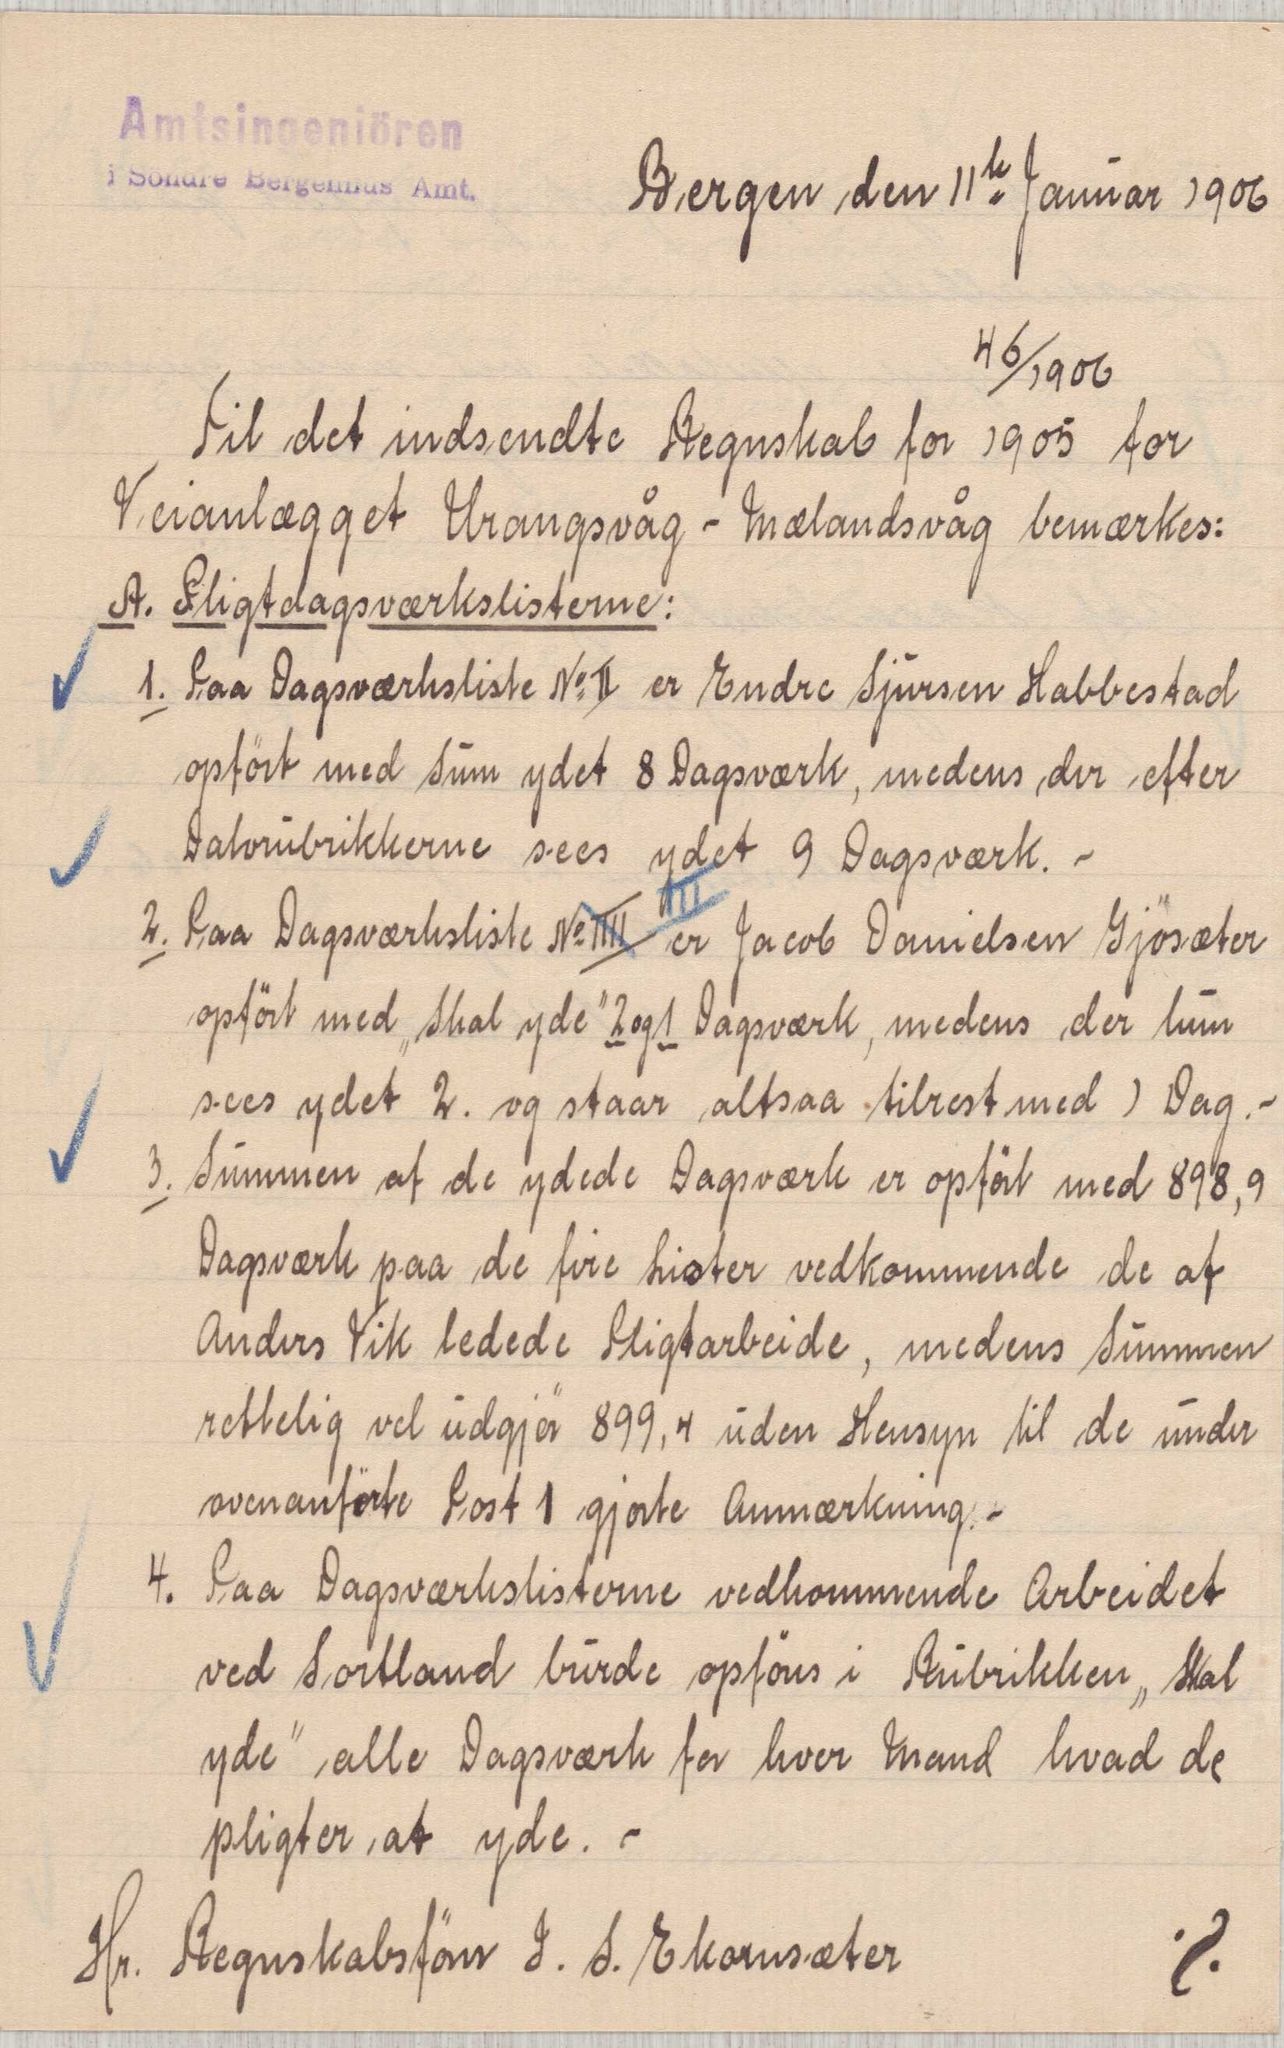 Amtsingeniören
i Söndre Bergenhus Amt.
Bergen den 11te Januar 1906
46/1906
Til det indsendte Regnskab for 1905 for
Veianlægget Urangsvåg - Mælandsvåg bemærkes:
A. Pligtdagsværkslisterne:
1. Paa Dagsværksliste No. II er Endre Sjursen Habbestad
opfört med Sum ydet 8 Dagsværk, medens der efter
Datorubrikkerne sees ydet 9 Dagsværk. -
III
2. Paa Dagsværksliste No. IIII er Jacob Danielsen Gjösæter
opfört med „Skal yde" 2 og 1 Dagsværk, medens der kun
sees ydet 2. og staar altsaa tilrest med 1 Dag. -
3. Summen af de ydede Dagsværk er opfört med 898,9
Dagsværk paa de fire Lister vedkommende de af
Anders Vik ledede Pligtarbeide, medens Summen
rettelig vel udgjör 899,4 uden Hensyn til de under
ovenanförte Post 1 gjorte Anmærkning. -
4. Paa Dagsværkslisterne vedkommende Arbeidet
ved Sortland burde opföres i Rubrikken „Skal
yde" alle Dagsværk for hver Mand hvad de
pligter at yde. -
Hr. Regnskabsförer J. S. Ekornsæter
./.